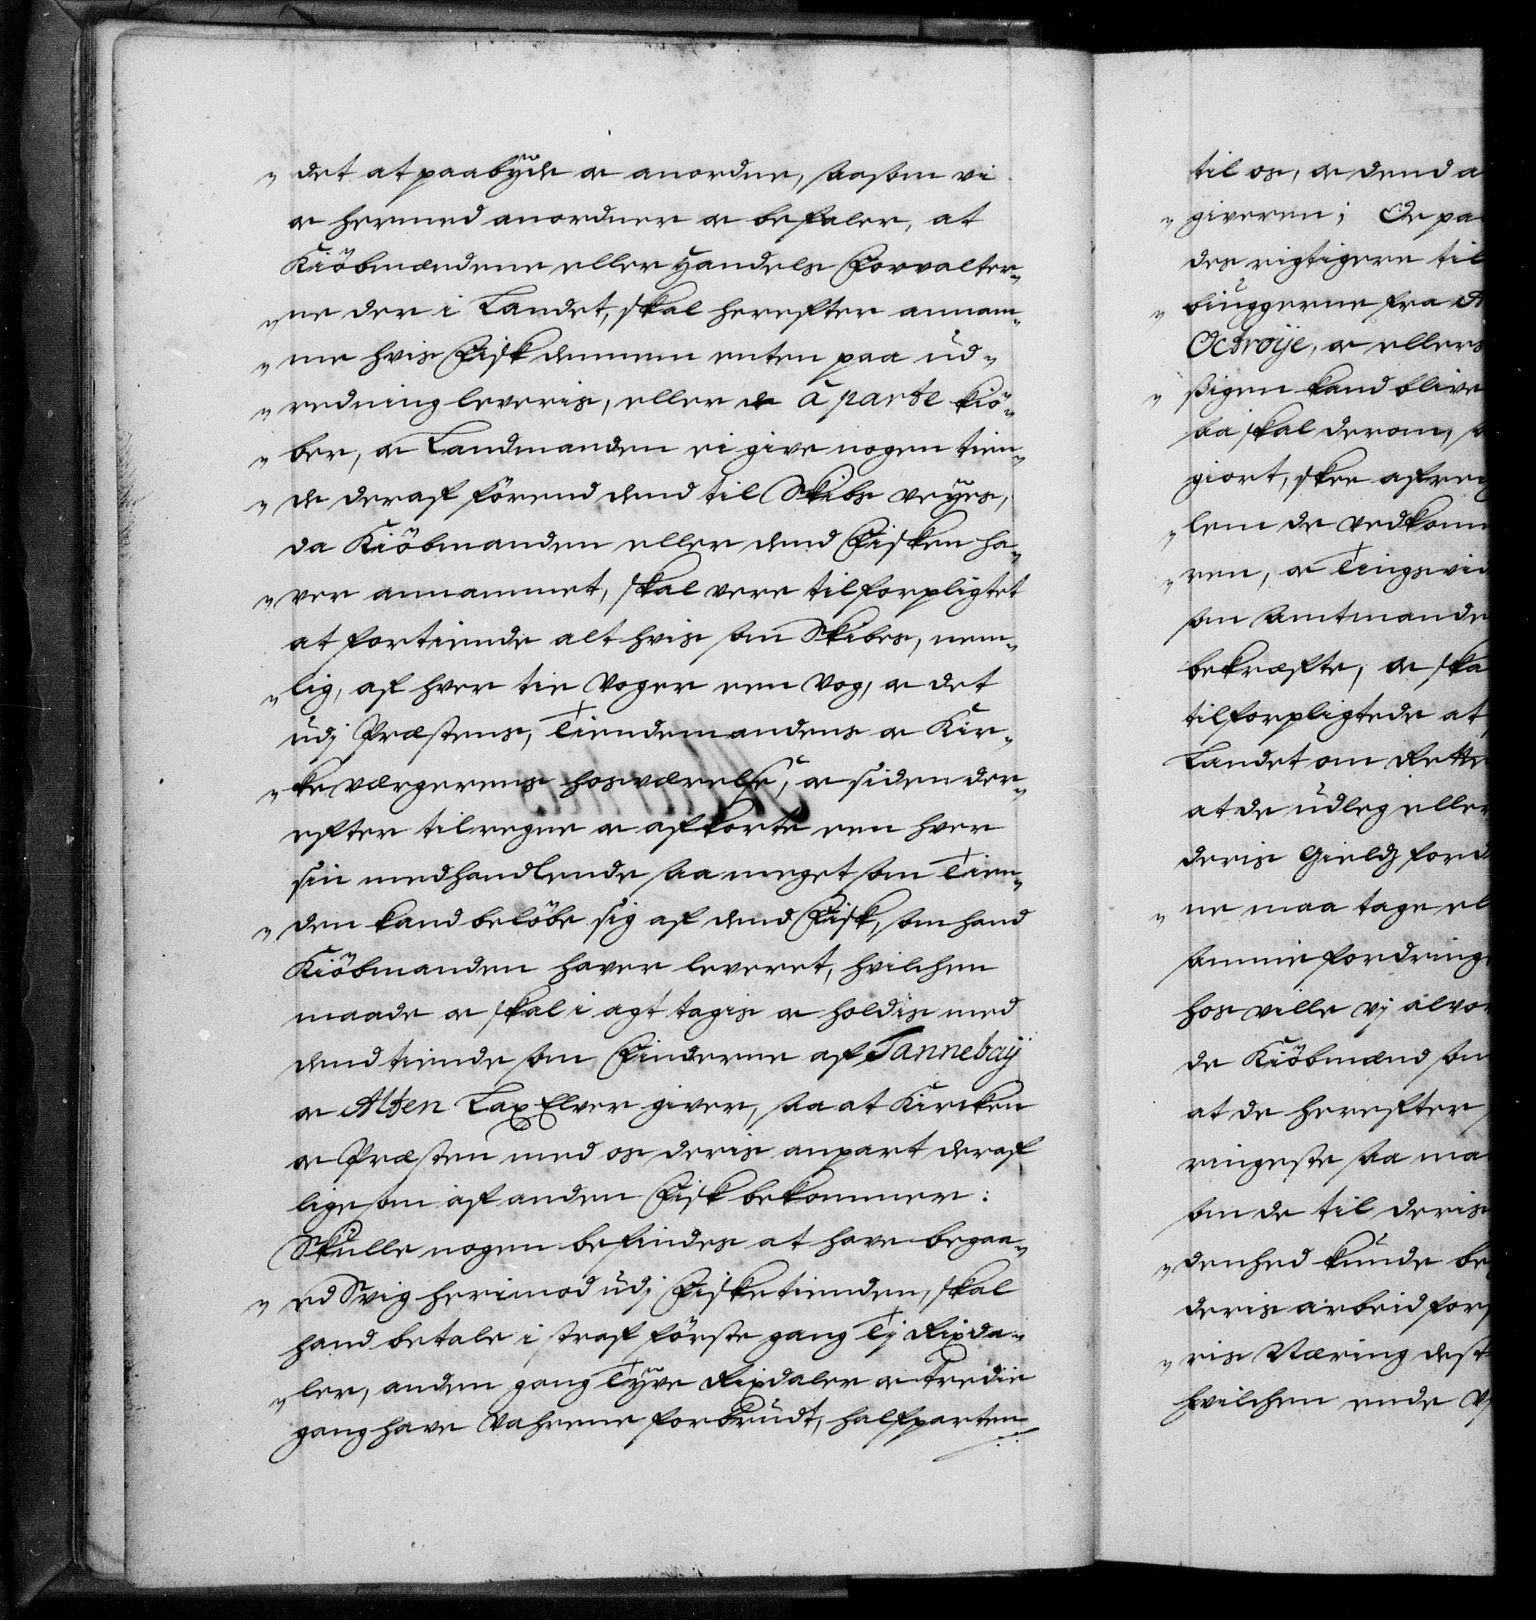 „ det at paabÿde oc anordne, saasom vi
oc hermed anordner oc befaler, at
Kiöbmændene eller Handels Forvalter„
„ ne der i Landet, skal herefter annam„
„ me hvis Fisk dennem enten paa ud„
„ redning leveris, eller de à parte kiö„
„ ber, oc Landmanden ei give nogen tien„
„ de deraf förend dend til Skibs veÿes,
da Kiöbmanden eller dend Fisken ha„
„ ver annammet, skal vere tilforpligtet
at fortiende alt hvis som Skibes, nem„
„ lig, af hver tie Voger een Vog, oc det
udj Præstens, Tiendemandens oc Kir„
„ keværgerens hosværelse, oc siden der„
efter tilregne oc afkorte een hver
sin medhandlende saa meget som Tien„
„ den kand belöbe sig af dend Fisk, som hand
Kiöbmanden haver leveret, hvilchen
maade oc skal i agt tagis oc holdis med
dend tiende som Finderne af Tannebaÿ
oc Alten Lax Elver giver, saa at Kircken
oc Præsten med os deris anpart deraf
ligesom af anden Fisk bekommer:
Skulle nogen befindes at have begaa„
„ ed Svig herimod udj Fisketienden, skal
hand betale i straf förste gang Tj Rixda„
„ ler, anden gang Tÿve Rixdaler oc Tredie
gang have Vahrene forbrudt, halfparten
til os, oc dend a
„ giveren; Oc pa
des rigtigere til
„ biuggerne fra
Octroÿe, oc ellers
„ sigen kand blive
saa skal derom,
giort, skee
„ lem de vedkom
„ ren, oc Tingsvid
som Amtmande
bekræfte, oc ska
tilforpligtede at
Landet om Rette
at de udleg eller
deris Gields ford
„ ne maa tage el
samme fordring
hos ville vj alvor
de Kiöbmænd som
at de herefter
ringeste saa ma
som de til deris
„ denhed kunde be
deris arbeid for
„ ris Næring dest
hvilchen ende V